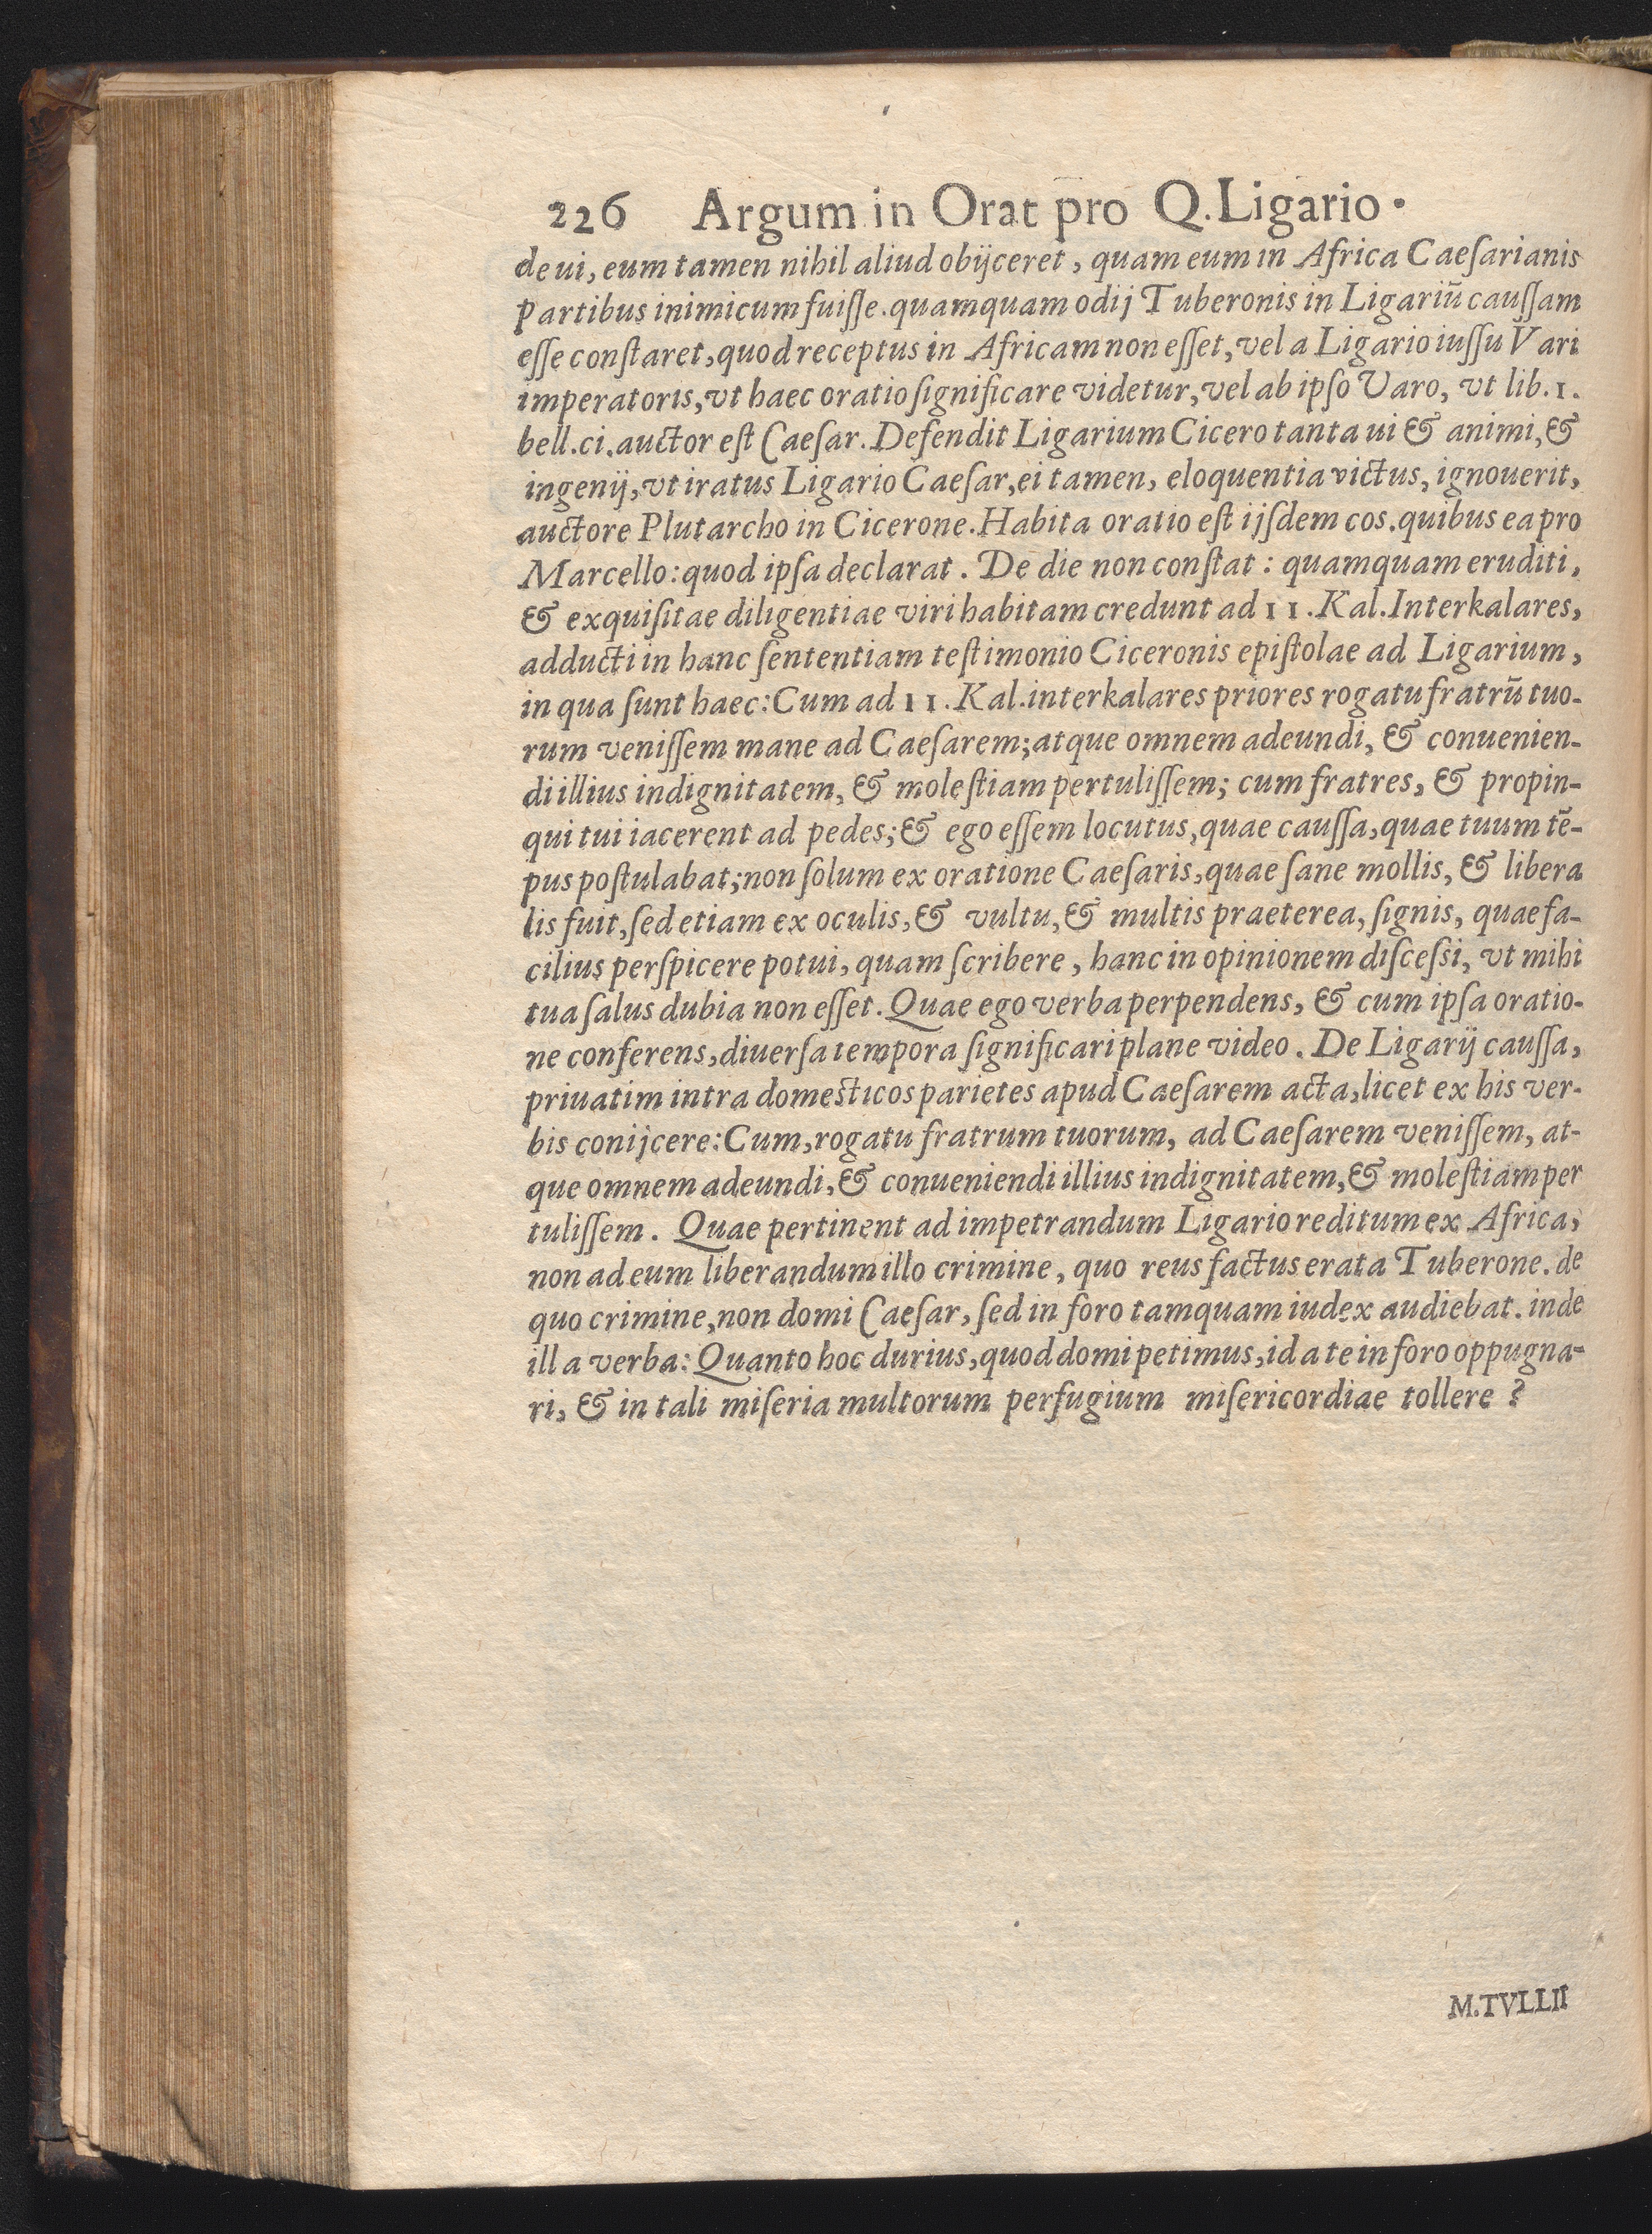 226 Argum in Orat pro Q. Ligario.
de ui, eum tamen nihil aliud obijceret, quam eum in Africa Caeſarianis
partibus inimicum fuiſſe. quamquam odij Tuberonis in Ligariū cauſſam
eſſe conſtaret, quod receptus in Africam non eſſet, vel a Ligario iuſſu Vari
imperatoris, vt haec oratio ſignificare videtur, vel ab ipſo Varo, vt lib. 1.
bell. ci. auctor eſt Caeſar. Defendit Ligarium Cicero tanta ui & animi, &
ingenij, vt iratus Ligario Caeſar, ei tamen, eloquentia victus, ignouerit,
auctore Plutarcho in Cicerone. Habita oratio eſt ijſdem cos. quibus ea pro
Marcello: quod ipſa declarat. De die non conſtat: quamquam eruditi,
& exquiſitae diligentiae viri habitam credunt ad 11. Kal. Interkalares,
adducti in hanc ſententiam teſtimonio Ciceronis epiſtolae ad Ligarium,
in qua ſunt haec: Cum ad 11. Kal. interkalares priores rogatu fratrū tuo-
rum veniſſem mane ad Caeſarem; atque omnem adeundi, & conuenien-
di illius indignitatem, & moleſtiam pertuliſſem; cum fratres, & propin-
qui tui iacerent ad pedes; & ego eſſem locutus, quae cauſſa, quae tuum tē-
pus poſtulabat; non ſolum ex oratione Caeſaris, quae ſane mollis, & libera
lis fuit, ſed etiam ex oculis, & vultu, & multis praeterea, ſignis, quae fa-
cilius perſpicere potui, quam ſcribere, hanc in opinionem diſceſſi, vt mihi
tua ſalus dubia non eſſet. Quae ego verba perpendens, & cum ipſa oratio-
ne conferens, diuerſa tempora ſignificari plane video. De Ligarij cauſſa,
priuatim intra domesticos parietes apud Caeſarem acta, licet ex his ver-
bis conijcere: Cum, rogatu fratrum tuorum, ad Caeſarem veniſſem, at-
que omnem adeundi, & conueniendi illius indignitatem, & moleſtiam per
tuliſſem. Quae pertinent ad impetrandum Ligario reditum ex Africa,
non ad eum liberandum illo crimine, quo reus factus erat a Tuberone. de
quo crimine, non domi Caeſar, ſed in foro tamquam iudex audiebat. inde
illa verba: Quanto hoc durius, quod domi petimus, id a te in foro oppugna-
ri, & in tali miſeria multorum perfugium miſericordiae tollere?
M. TVLLII